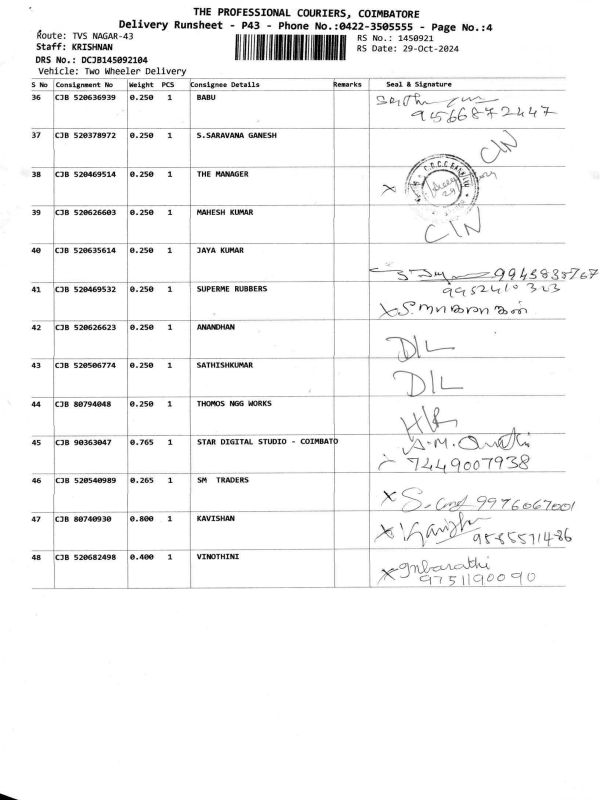 THE PROFESSIONAL COURIERS, COIMBATORE
Delivery Runsheet - P43 - Phone No.:0422-3505555 - Page No.:4
Route: TVS NAGAR-43 RS No.: 1450921
Staff: KRISHNAN RS Date: 29-Oct-2024
DRS No.: DCJB145092104
Vehicle: Two Wheeler Delivery
S No Consignment No Weight PCS Consignee Details Remarks Seal & Signature
36 CJB 520636939 0.250 1 BABU
9566872447
37 CJB 520378972 0.250 1 S.SARAVANA GANESH CIN
38 CJB 520469514 0.250 1 THE MANAGER X
39 CJB 520626603 0.250 1 MAHESH KUMAR CIN
40 CJB 520635614 0.250 1 JAYA KUMAR
41 CJB 520469532 0.250 1 SUPERME RUBBERS
42 CJB 520626623 0.250 1 ANANDHAN D/L
43 CJB 520506774 0.250 1 SATHISHKUMAR D/L
44 CJB 80794048 0.250 1 THOMOS NGG WORKS
45 CJB 90363047 0.765 1 STAR DIGITAL STUDIO - COIMBATO
7449007938
46 CJB 520540989 0.265 1 SM TRADERS X 9976067001
47 CJB 80740930 0.800 1 KAVISHAN X
48 CJB 520682498 0.400 1 VINOTHINI X Inbarathi
9751190090